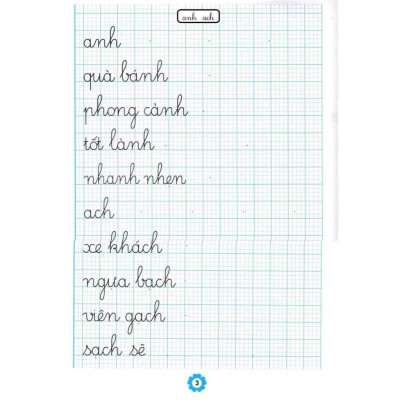 anh ach
anh
quà bánh
phong cảnh
tốt lành
nhanh nhẹn
ach
xe khách
ngựa bạch
viên gạch
sạch sẽ
3